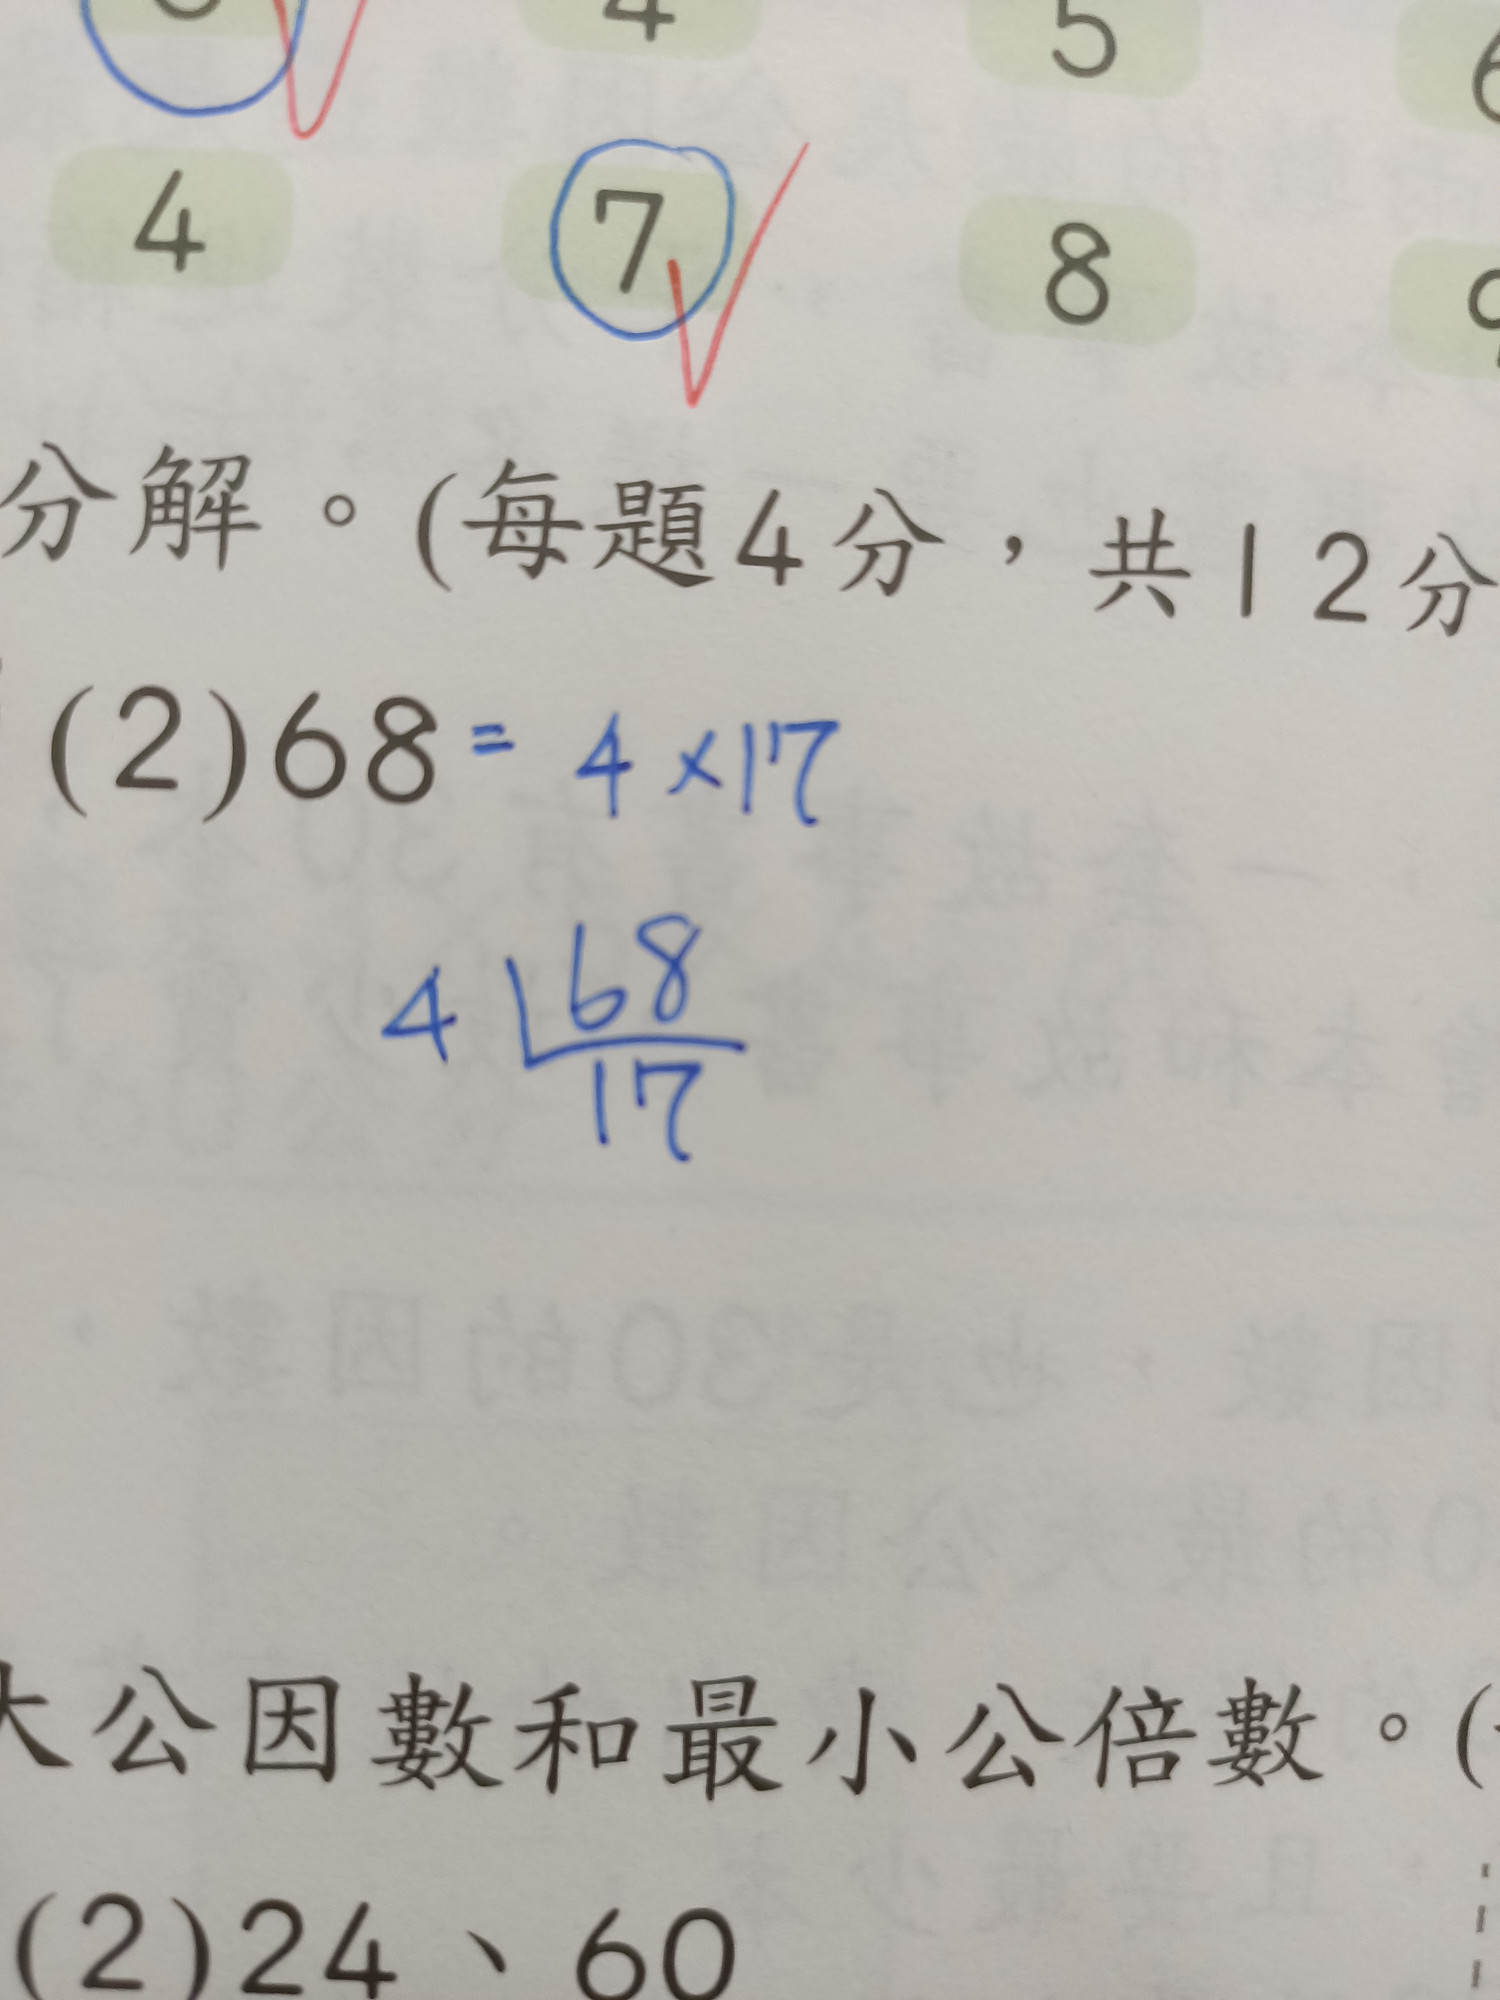 4 5 6
4 7 8 9
分解。(每題4分，共12分
(2)68= 4×17
4 68
17
大公因數和最小公倍數。(
(2)24、60